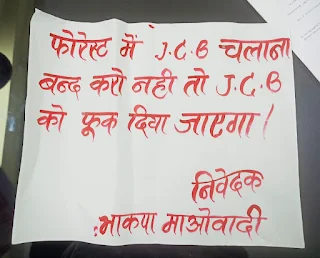 फोरेस्ट में J.C.B चलाना
बन्द करो नही तो J.C.B
को फूक दिया जाएगा /
निवेदक
:भाकपा माओवादी